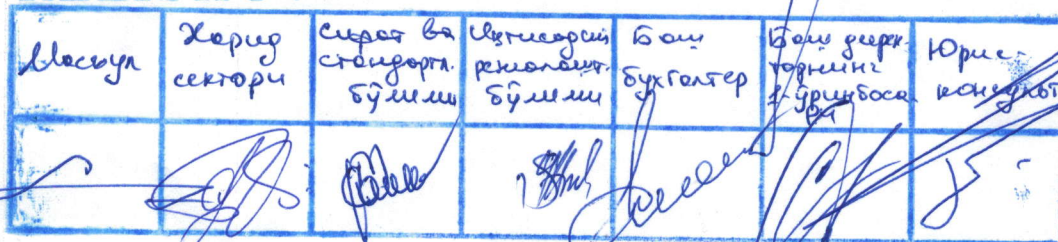 Масъул
Харид
сектори
Сифат ва
стандартл.
бўлими
Иқтисодий
бўлими
Бош
бухгалтер
Бош дирек-
торнинг
1-ўринбоса-
ри
Юрис-
консульт